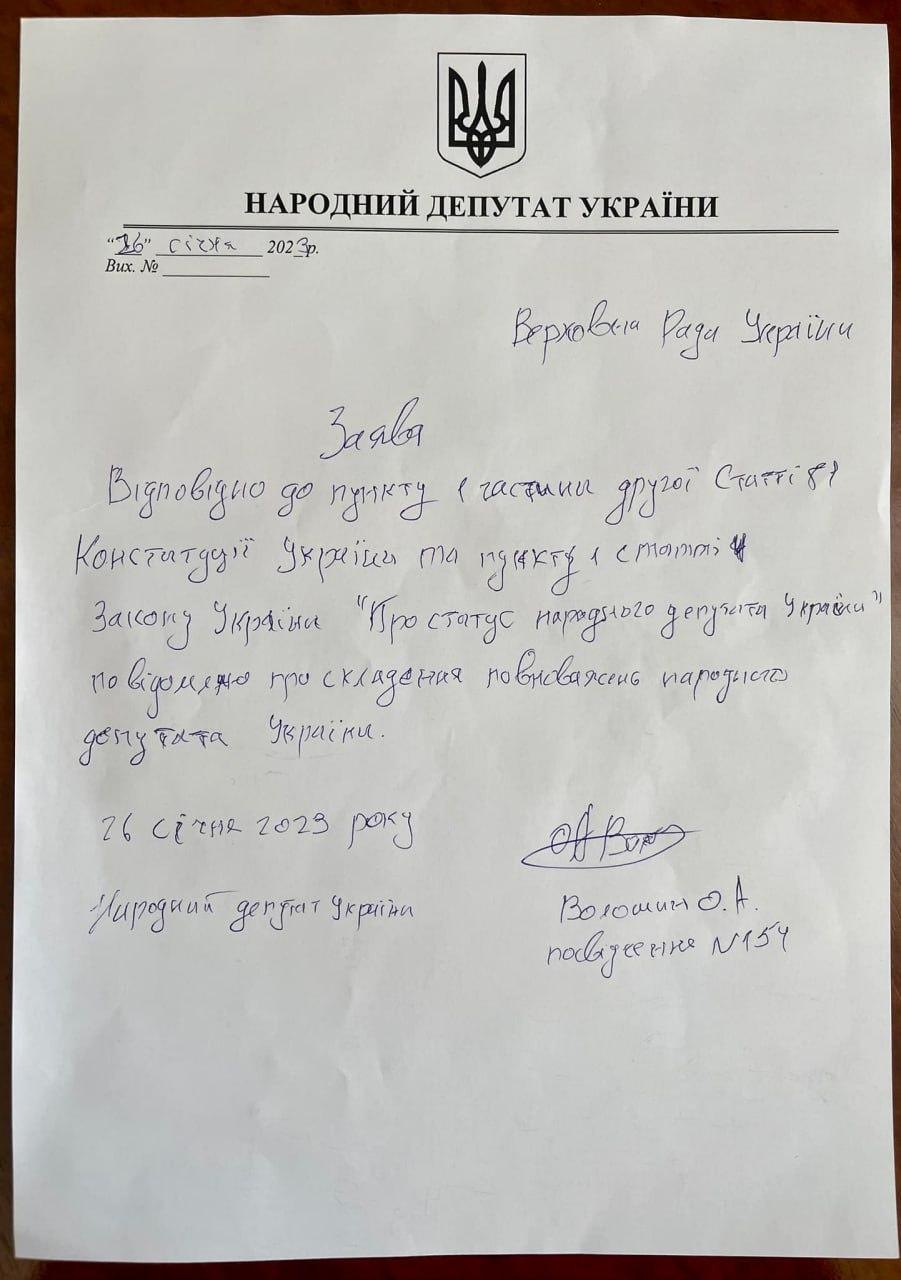 НАРОДНИЙ ДЕПУТАТ УКРАЇНИ
“26” січня 2023р.
Вих. № ___________
Верховна Рада України
Заява
Відповідно до пункту 1 частини другої Статті 81
Конституції України та пункту 1 статті 4
Закону України "Про статус народного депутата України"
повідомляю про складення повноважень народного
депутата України.
26 січня 2023 року
Народний депутат України
Волошин О. А.
посвідчення N154